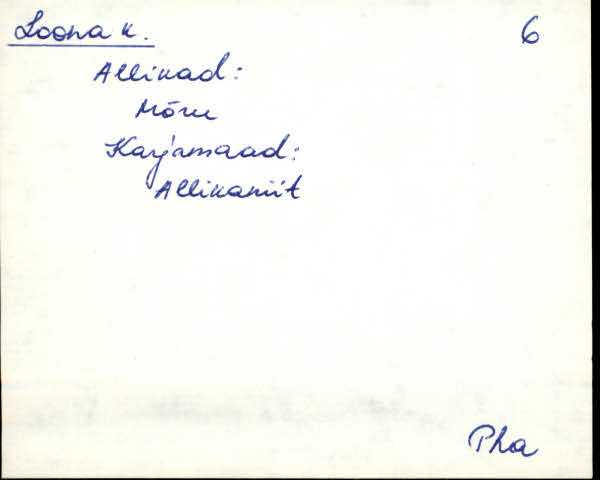 Loona k. 6
Allikad:
Mõru
Karjamaad:
Allikaniit
Pha